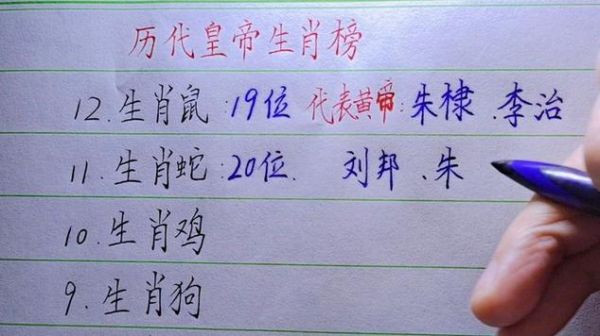 历代皇帝生肖榜
12.生肖鼠:19位 代表黄帝:朱棣、李治
11.生肖蛇:20位. 刘邦、朱
10.生肖鸡
9.生肖狗